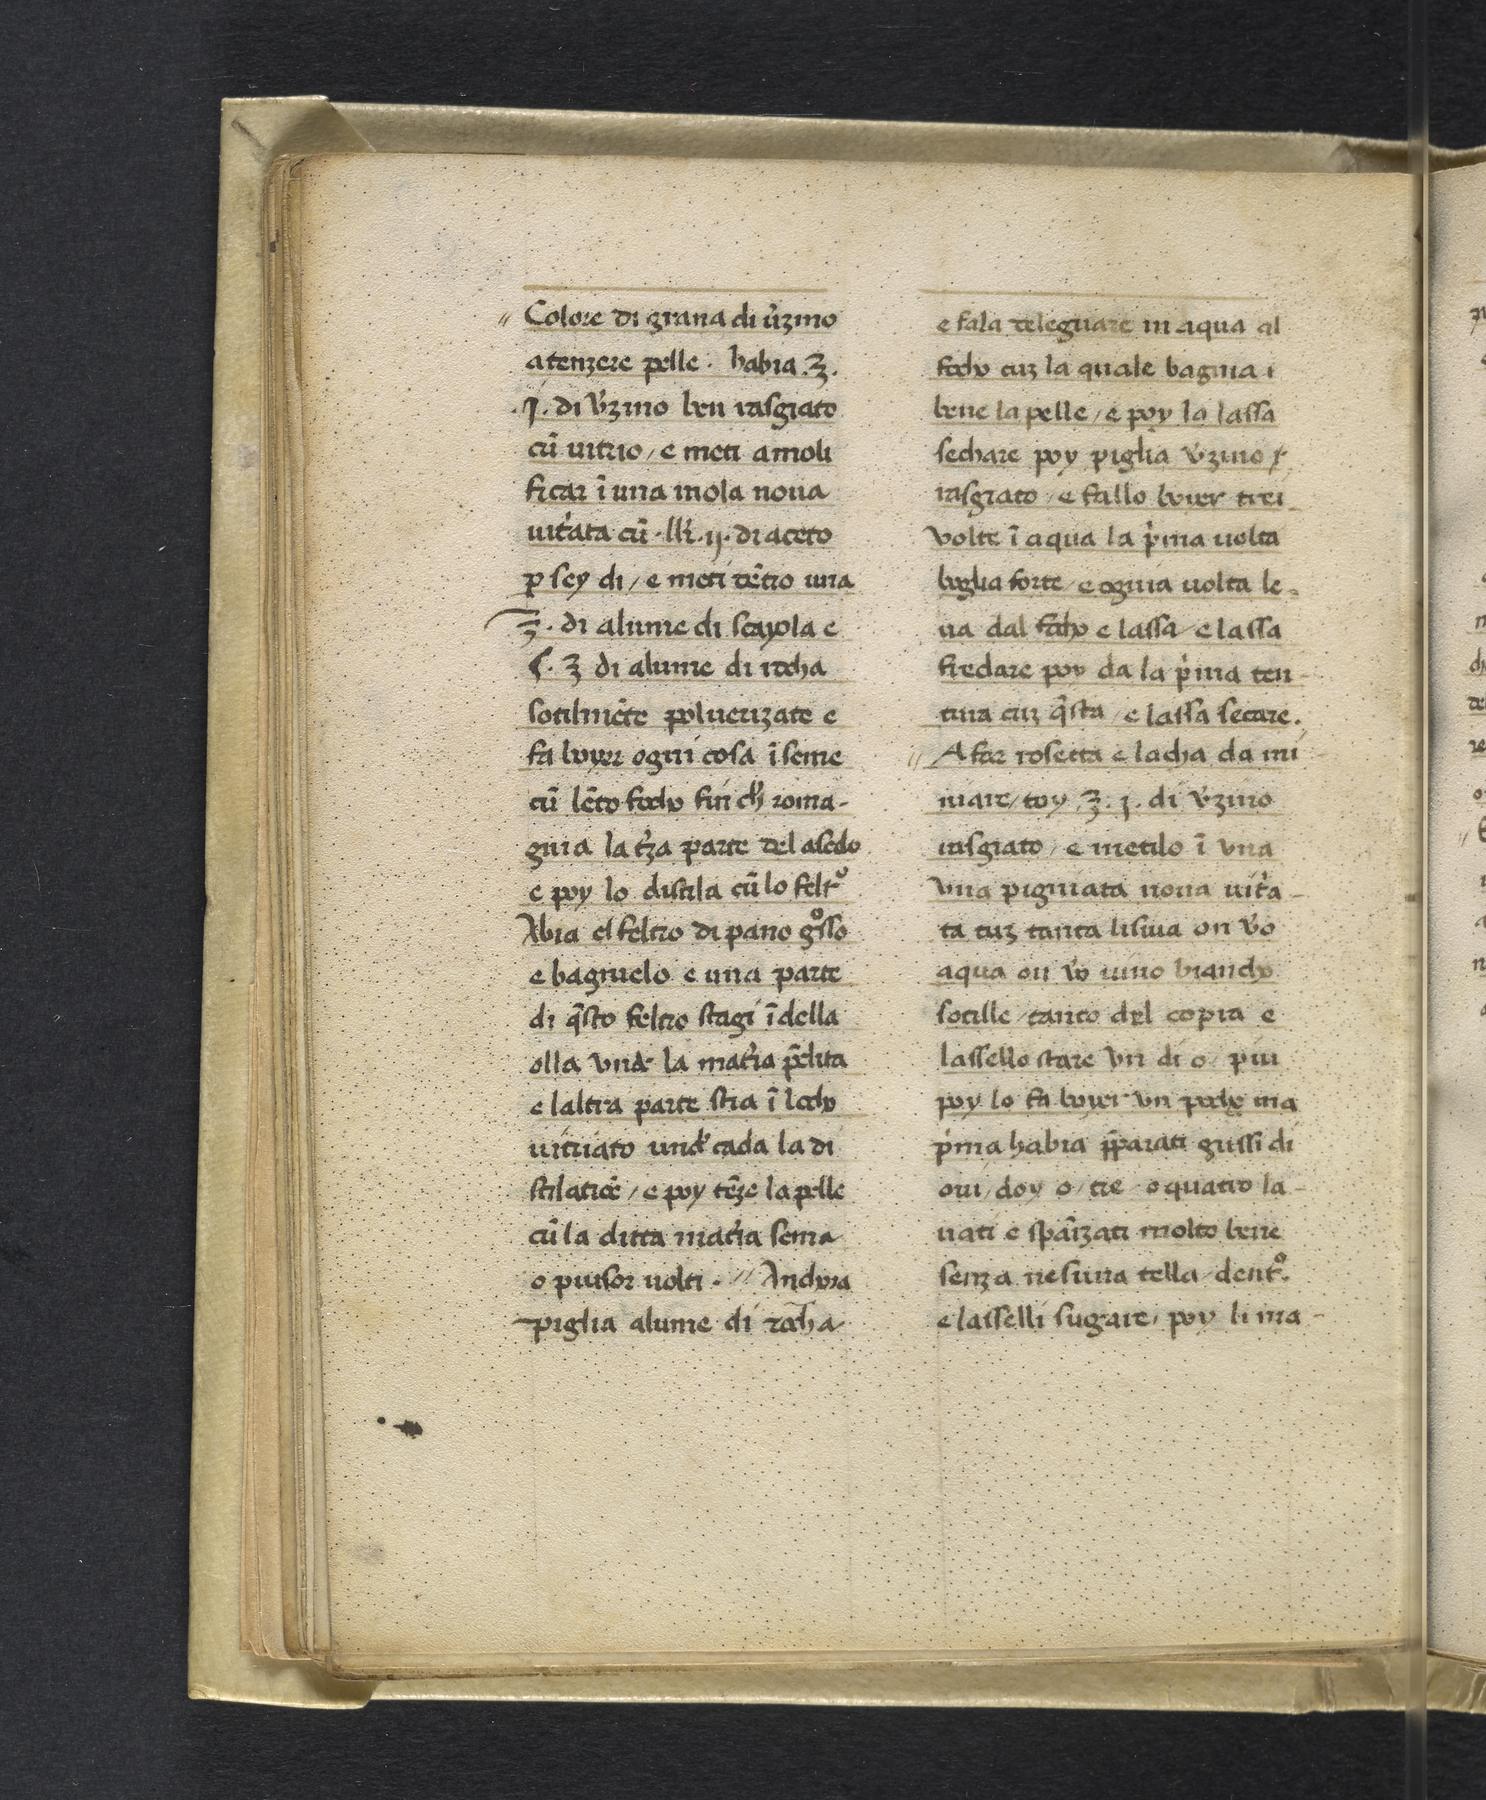 // Colore di grana di v̓zino
a tenzere pelle · habia .ʒ.
.J. di v̓zino ben rasgiato
cū uitrio / e meti a moli
ficar ī una mola noua
uit̓ata cū · .ij. di aceto
ꝑ sey di / e meti dētro una
ʒ. di alume di scayola e
ʒ di alume di rocha
sotilmēte poluerizate e
fa boyer ogni cosa īseme
cū lēto focho fin ch̓ roma-
gnia la t̓za parte del asedo
e poy lo distila cū lo feltº
Abia el feltro di pano gºsso
e bagnielo e una parte
di q̄sto feltro stagi ī della
olla vnd̓ la mat̓ia p̄dita
e laltra parte stia ī locho
uitriato und̓ cada la di
stilatiōe / e poy tēze la pelle
cū la ditta mat̓ia sema
o piusor uolti · // Anchora
piglia alume di rocha
e fala deleguare in aqua al
focho cuz la quale bagnia
bene la pelle / e poy la lassa
sechare poy piglia v̓zino
rasgiato / e fallo boier trei
volte ī aqua la p̓ma uolta
boglia forte / e ognia uolta le-
ua dal focho e lassa / e lassa
fredare poy da la p̓ma ten-
tura cuz q̄sta / e lassa secare.
// A far rosetta e lacha da mi
niare / toy .ʒ. j. di v̓zino
rasgiato / e metilo ī vna
vna pigniata noua uit̓a-
ta cuz tanta lisiua on v̓o
aqua on v̓o uino biancho
sotille / tanto chel copra e
lassello stare vn di o / piu
poy lo fa boyer vn pocho ma
p̓ma habia p̄parati gussi di
oui / doy o / tre / o quatro la-
uati e spāzati molto bene
senza nesuna tella / dentº.
e lasselli sugare / poy li ma-